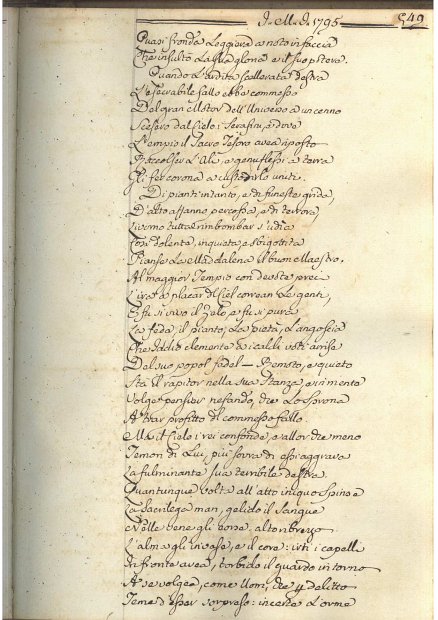 J. M. J. 1795
549
Quasi fronda leggiera a noto in faccia
Che insultò la sua gloria e il suo potere.
Quando l'ardita scellerata destra
L'esecrabile fallo ebbe commesso
Del gran Motor dell'Universo a un cenno
Scesero dal Cielo i Serafini, e dove
L'empio il Sacro Tesoro avea riposto
Raccolser l'Ali, e genuflessi a terra
Gli fer corona a custodirlo uniti.
Di pianti intanto, e di funeste grida,
D'alto affanno percossa, e di terrore
Livorno tutta rimbombar s'udia
Così dolente, inquieta e sbigotita
Pianse la Maddalena il buon Maestro.
Al maggior Tempio con devote preci
L'ira a placar del Ciel correan le genti,
E fu sì vivo il Zelo, e fu sì pura
La fede, il pianto, la pietà, l'angoscia
Che Iddio clemente ai caldi voti arrise
Del suo popol fedel — Remoto, e quieto
Sta il rapitor nella sua Stanza, e in mente
Volge pensier nefando, che lo sprona
A trar profitto del commesso fallo.
Ma il Cielo i rei confonde, e allor che meno
Temon di Lui, più sovra di essi aggrava
La fulminante sua terribile destra.
Quantunque volte all'atto iniquo spinse
La sacrilega man, gelido il sangue
Nelle vene gli corse. alto ribrezzo
L'alma gli invase, e il core: irti i capelli
In fronte avea, torbido il guardo intorno
A se volgea, come Uom, che pel delitto
Teme d'esser sorpreso: incerte l'orme